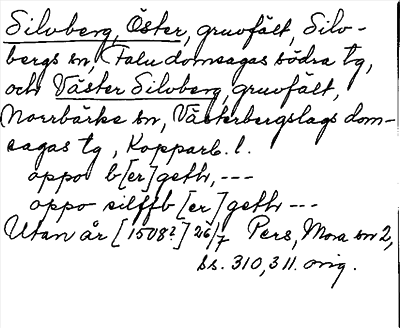 Silvberg, Öster, gruvfält, Silv-
bergs sn, Falu domsagas södra tg,
och Väster Silvberg, gruvfält,
Norrbärke sn, Västerbergslags dom-
sagas tg, Kopparb. l.
oppo b[er]geth, ---
oppo silffb[er]geth ---
Utan år [1508?] 26/7 Pers, Mora sn 2,
ss. 310, 311. orig.